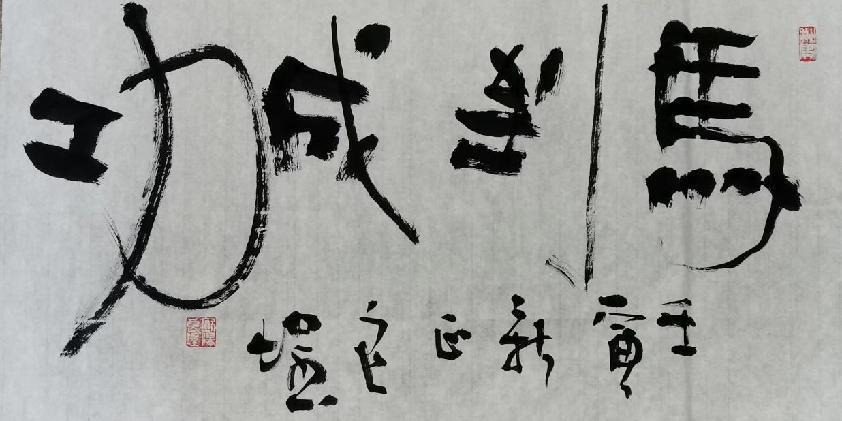 馬到成功
壬寅新正